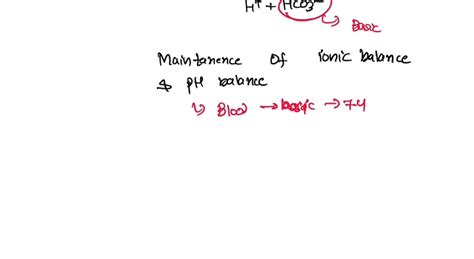 H⁺ + HCO3⁻
↳ Basic
Maintanence Of ionic balance
& pH balance
↳ Blood → basic → 7.4